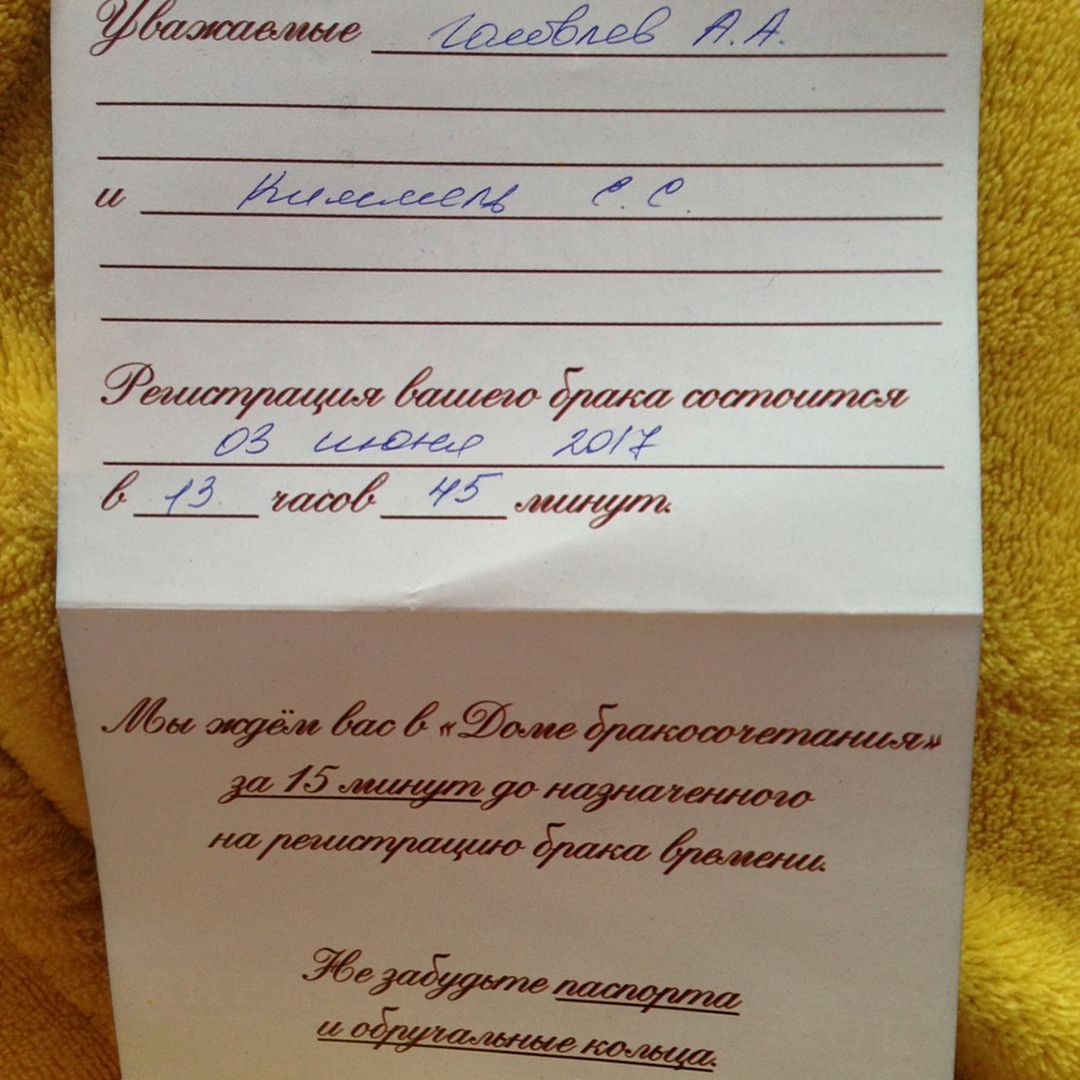 Уважаемые Головлев А.А.
и Киммель С.С.
Регистрация вашего брака состоится
03 июня 2017
в 13 часов 45 минут.
Мы ждём вас в «Доме бракосочетания»
за 15 минут до назначенного
на регистрацию брака времени.
Не забудьте паспорта
и обручальные кольца.